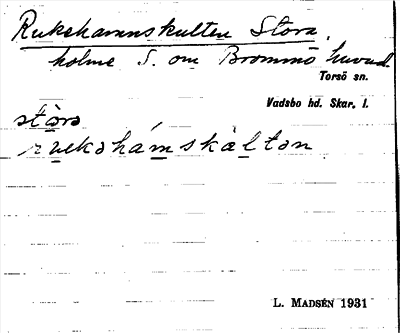 Rukehamnskulten Stora.
holme S. om Brommö huvud.
Torsö sn.
Vadsbo hd. Skar. l.
stòra
ruekahámskàltan
L. MADSÉN 1931